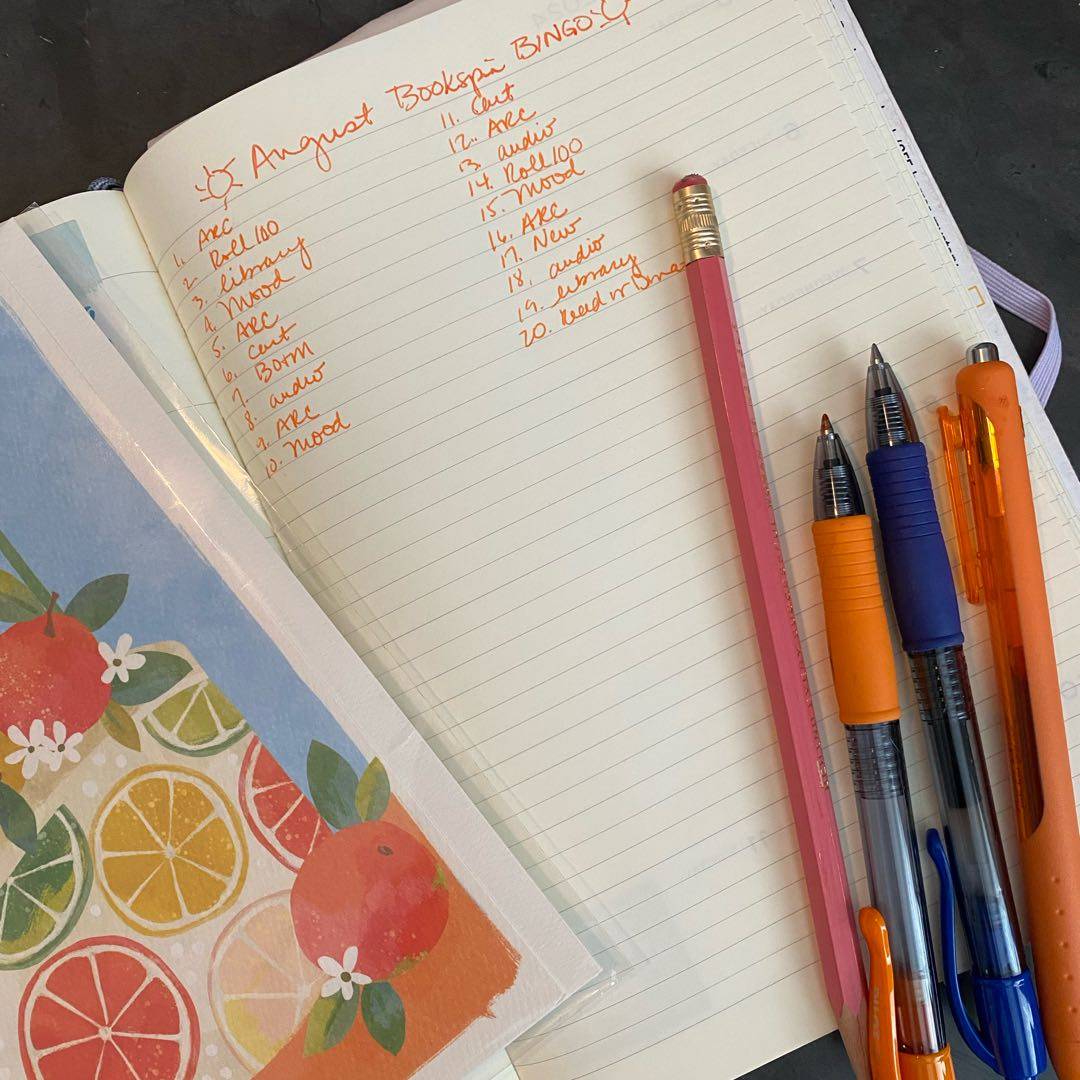 August Bookspin BINGO
1. ARC
2. Roll100
3. library
4. Mood
5. ARC
6. Cart
7. BOTM
8. audio
9. ARC
10. Mood
11. Cart
12. ARC
13. audio
14. Roll100
15. Mood
16. ARC
17. New
18. audio
19. library
20. Read